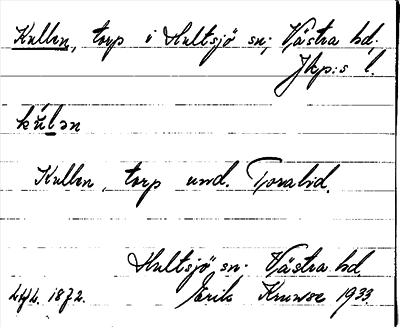 Kullen, torp i Hultsjö sn; Västra hd;
Jkp:s l.
kúlən
Kullen, torp und. Toralid.
Hultsjö, sn. Västra hd.
Lfl. 1872. Erik Kruuse 1933